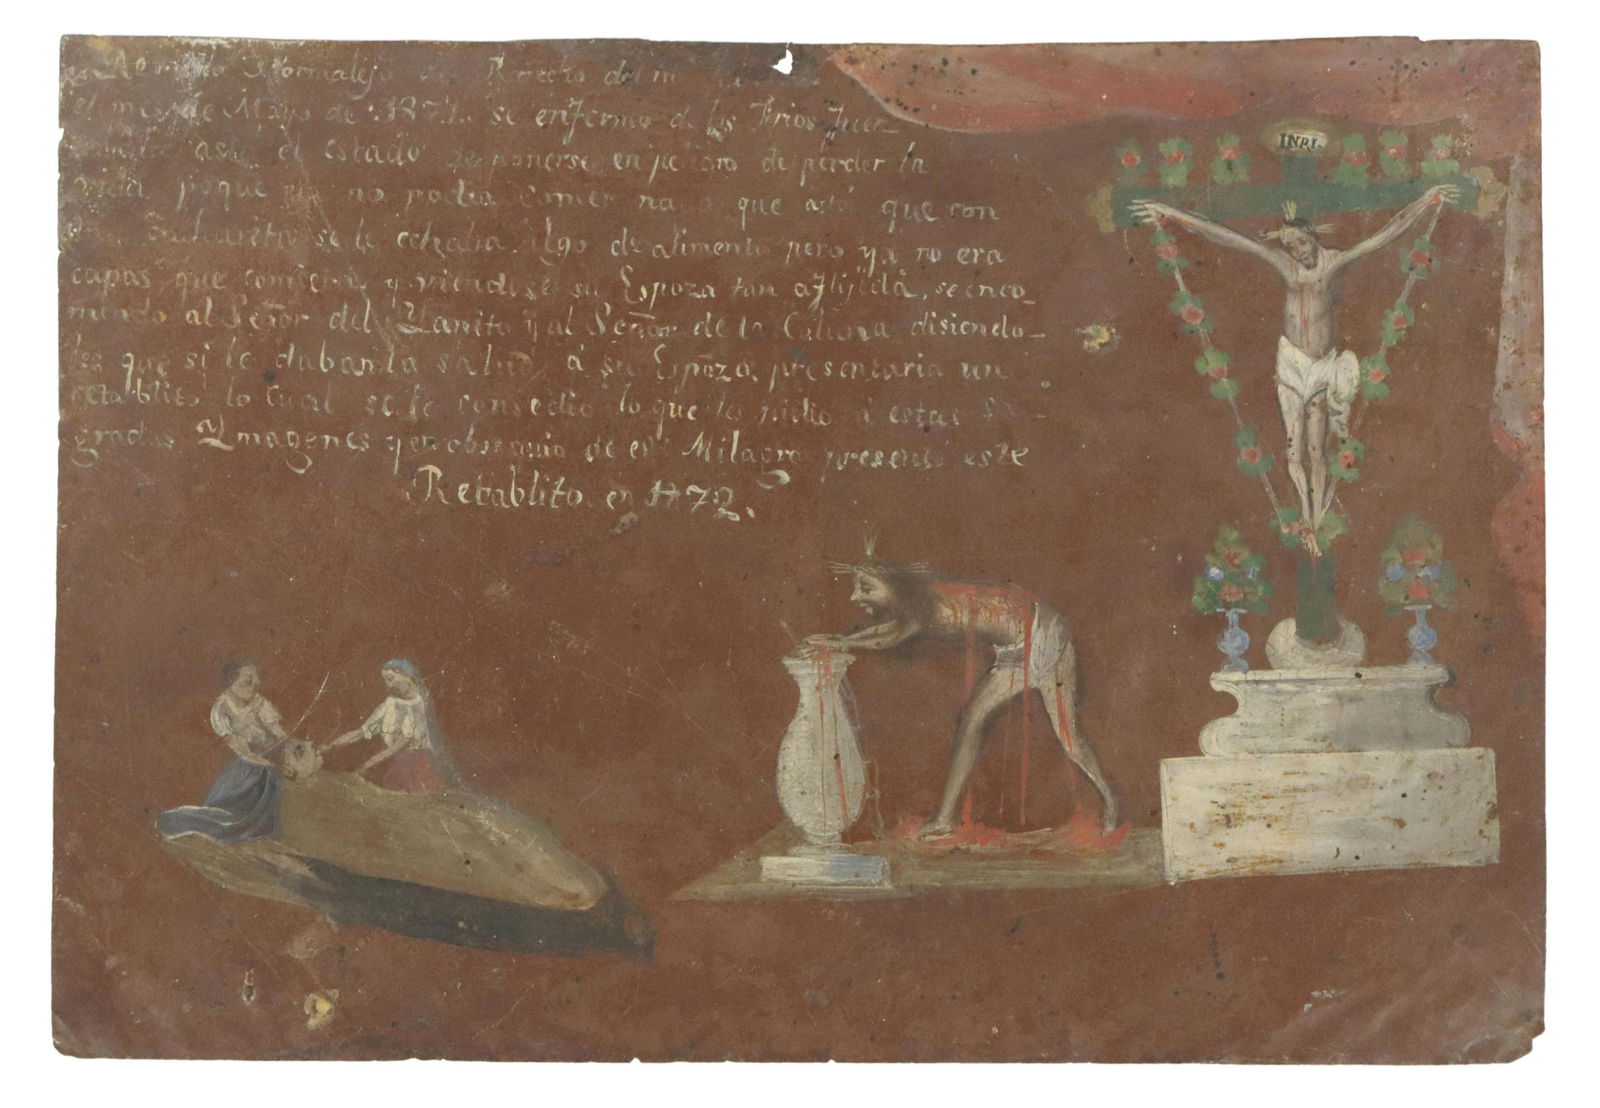 Hormalejo de Rancho del
el mes de Mayo de 1871. se enfermo de los Frios Fuer
aste el estado de ponerse en peligro de perder la
vida poque no podia comer nada que astá que con
se le echaba algo de alimento pero ya no era
capas que comiera y viendose su Espoza tan aflijida, se enco_
mendo al Señor del Llanito y al Señor de la Coluna disiendo_
les que si le daban la salud á su Espoza presentaria un
retablito lo Cual se le consedio lo que les pidio á estas Sa
gradas Ymagenes y en obsequio de este Milagro presento este
Retablito en 1872.
INRI